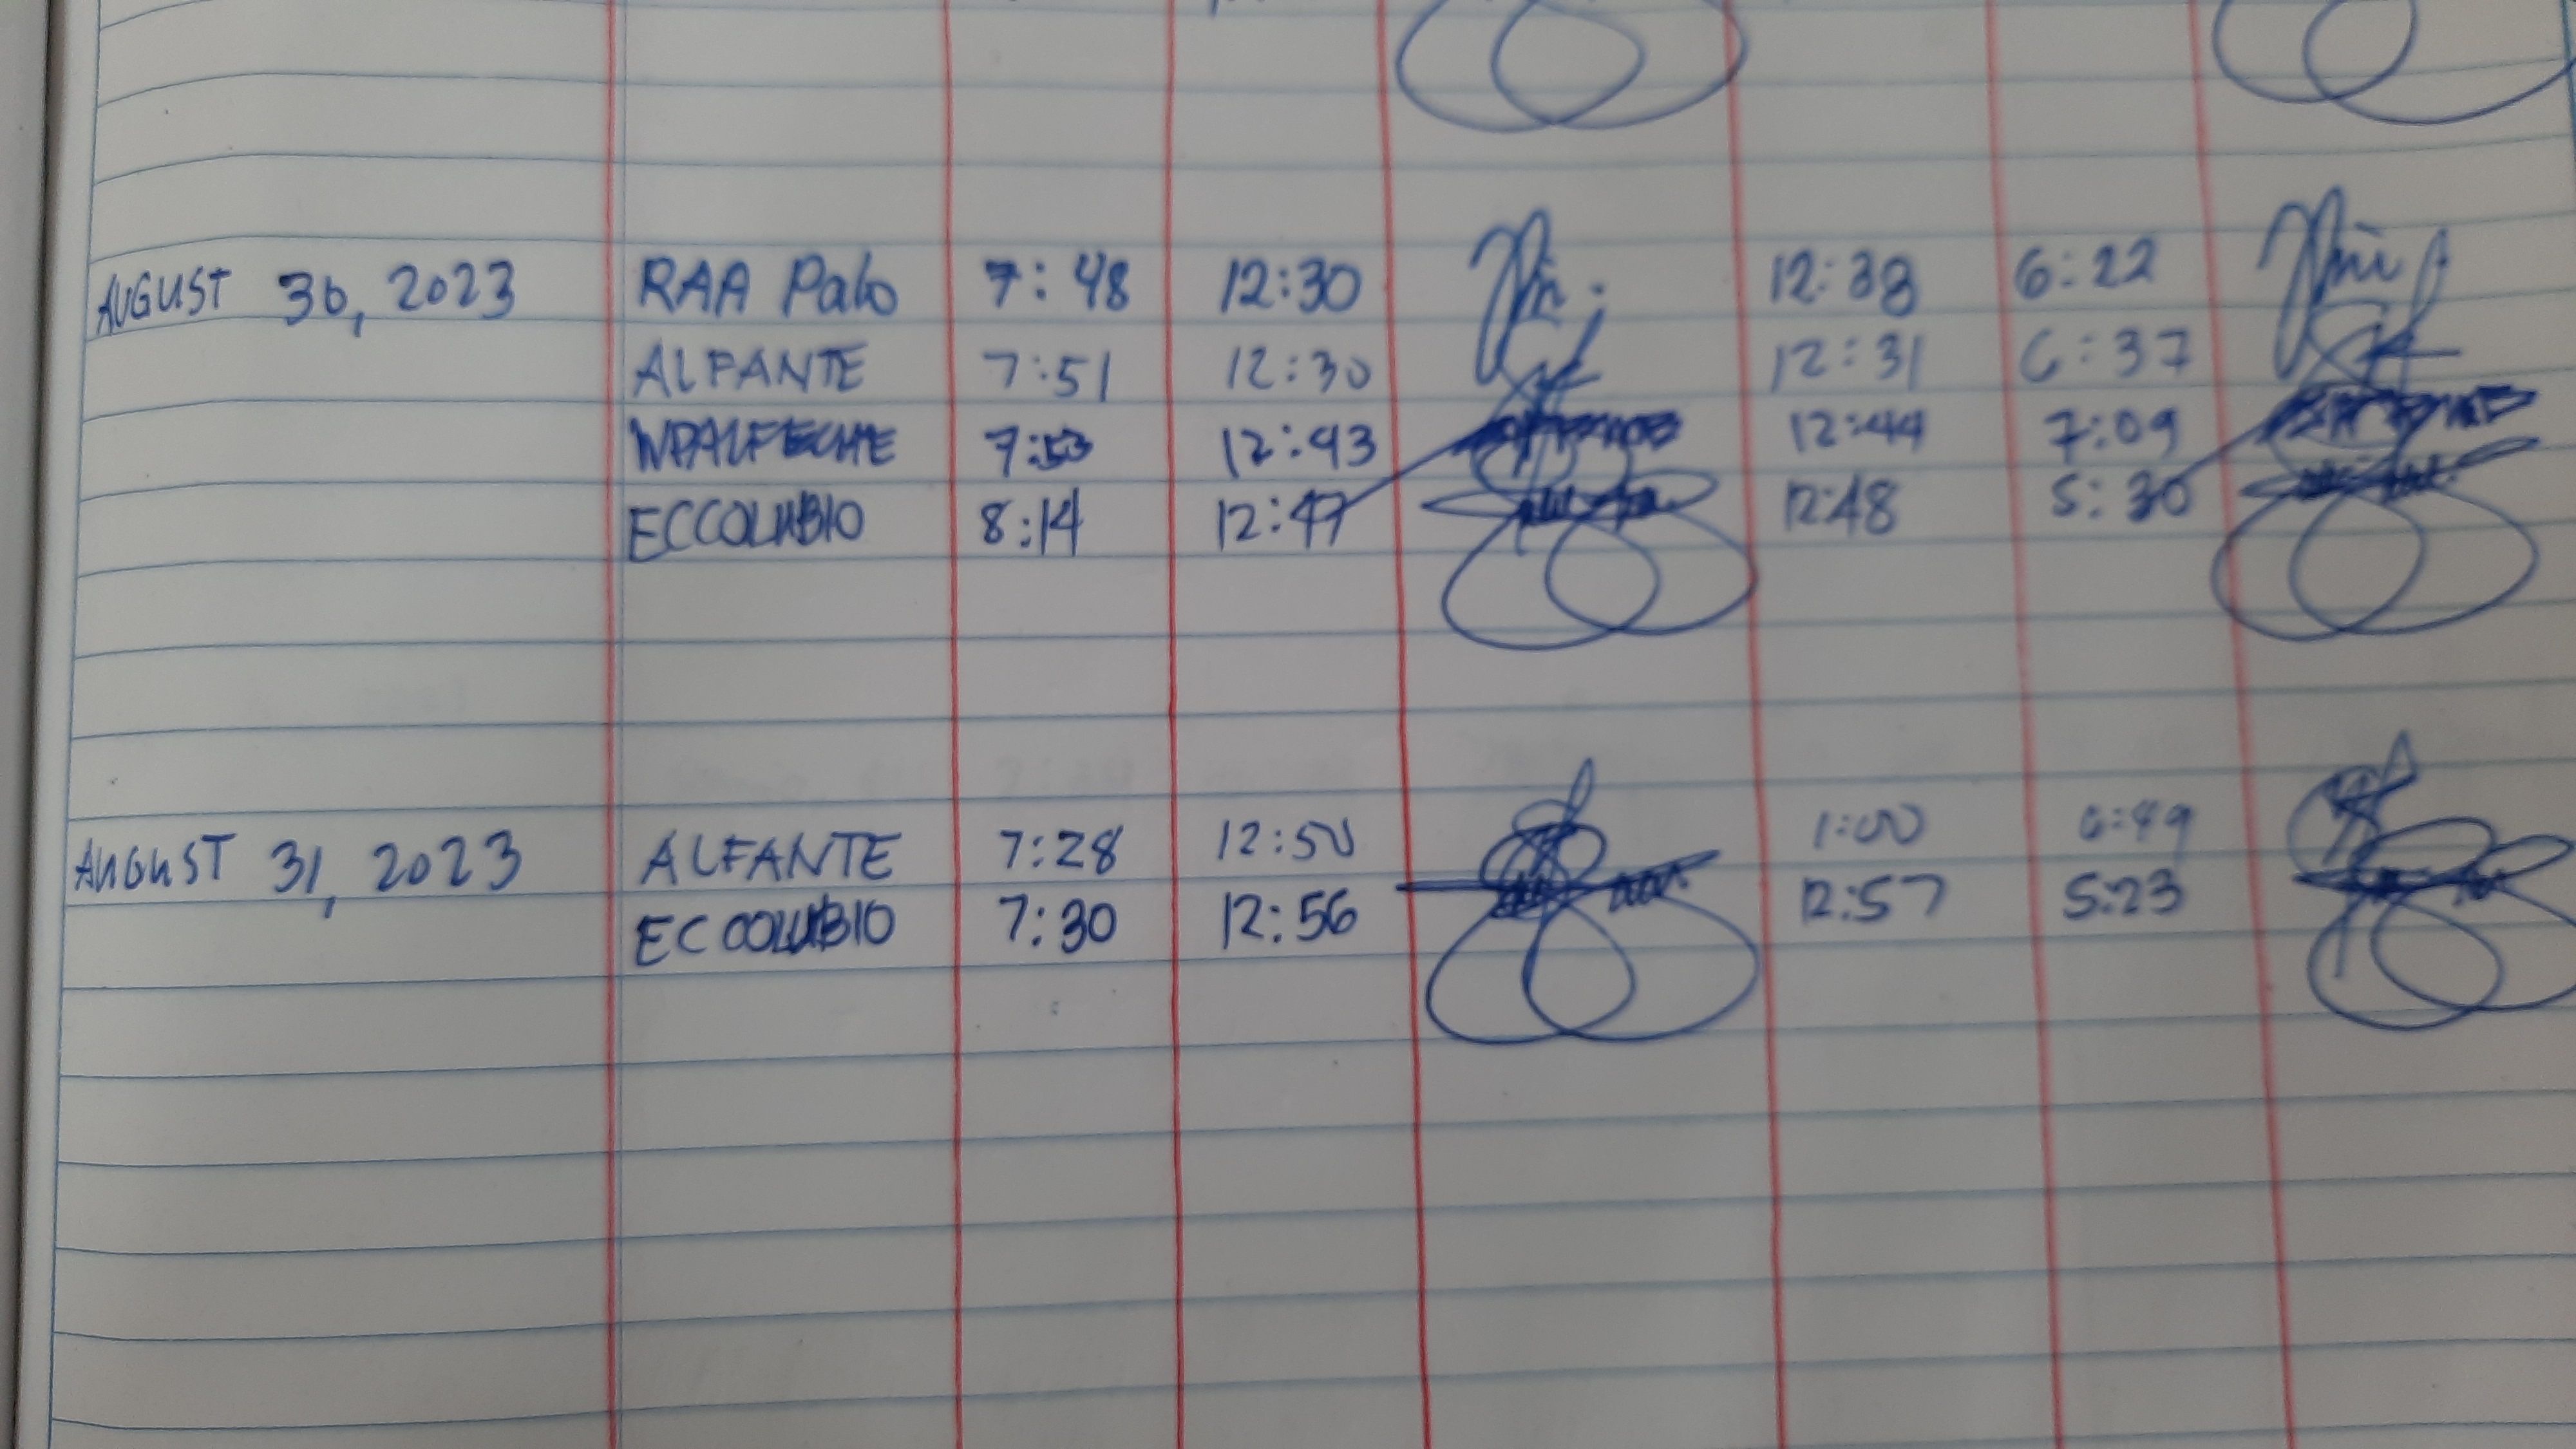 AUGUST 30, 2023 RAA Palo 7:48 12:30 12:38 6:22
ALFANTE 7:51 12:30 12:31 6:37
NPALFECHE 7:53 12:43 12:44 7:09
ECCOLUBIO 8:14 12:47 12:48 5:30
AUGUST 31, 2023 ALFANTE 7:28 12:50 1:00 6:49
ECCOLUBIO 7:30 12:56 12:57 5:23